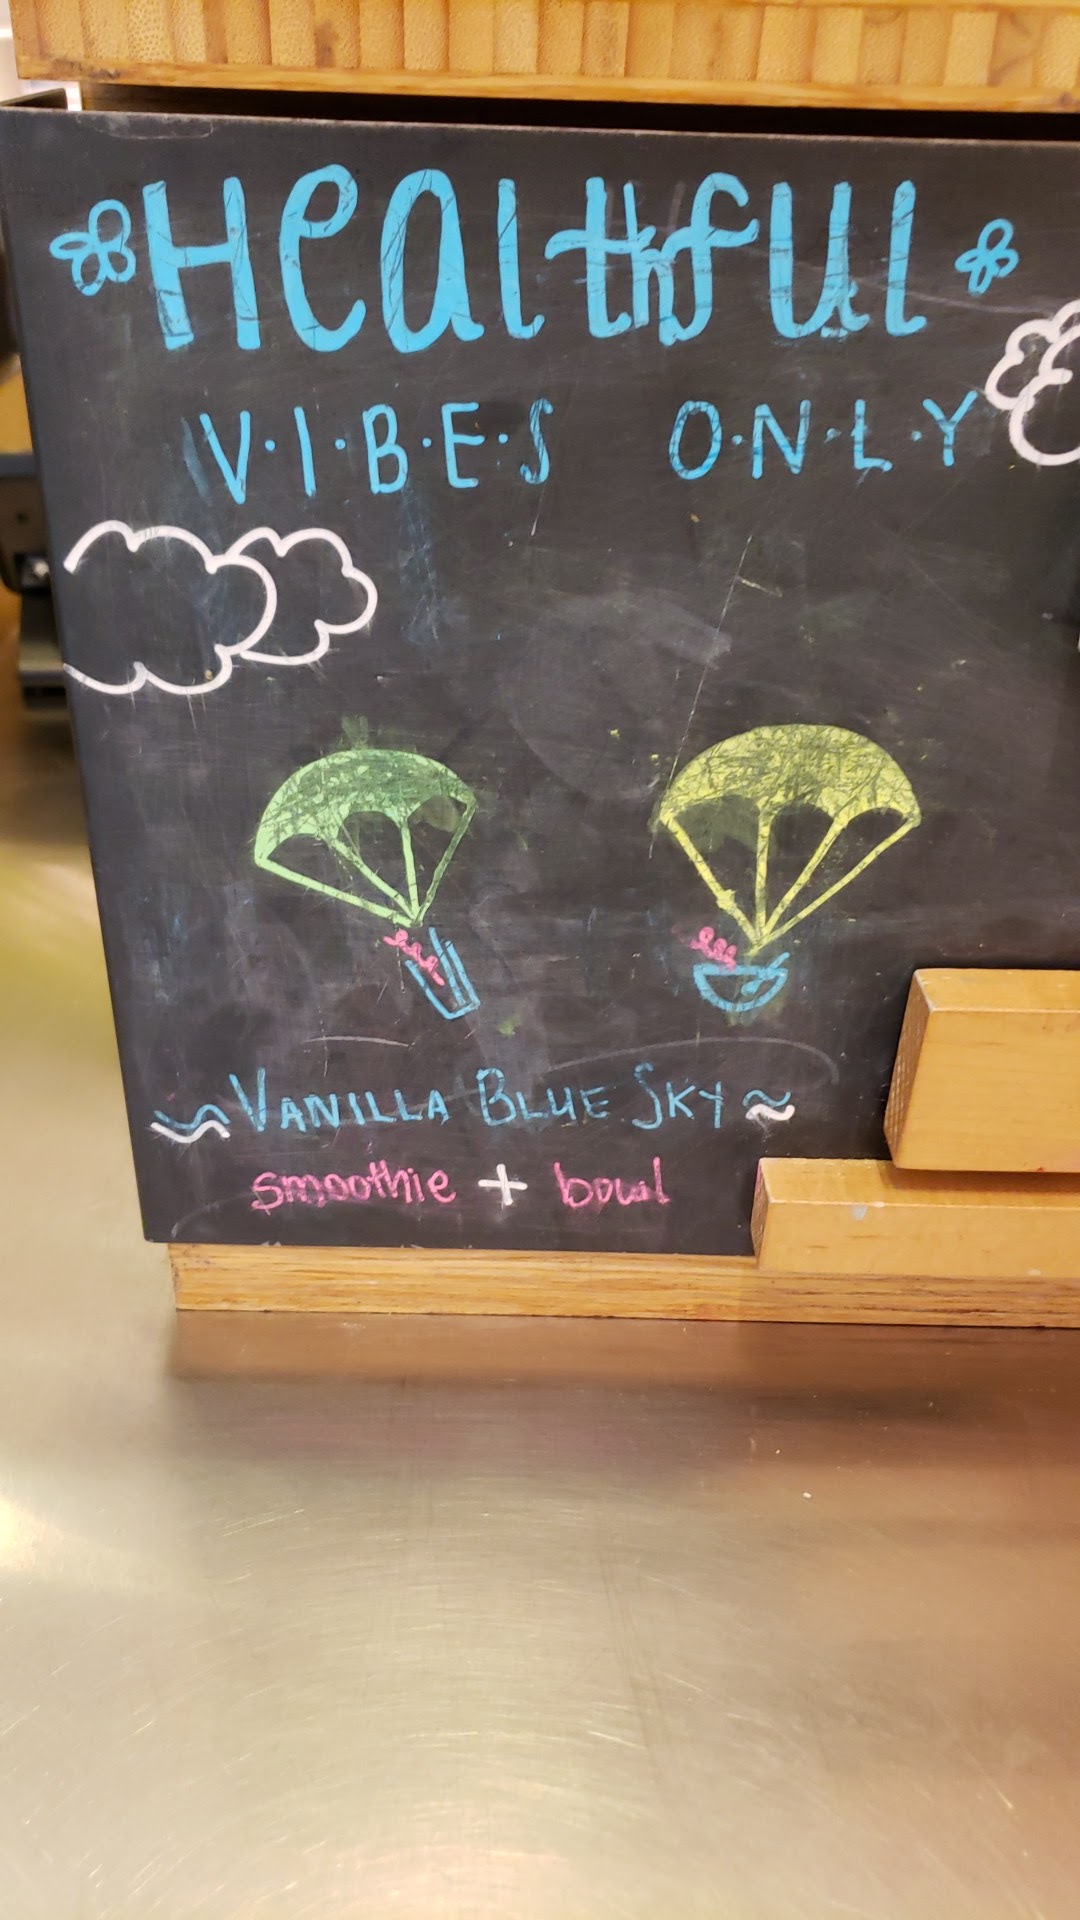 Healthful
V·I·B·E·S O·N·L·Y
VANILLA BLUE SKY
smoothie + bowl